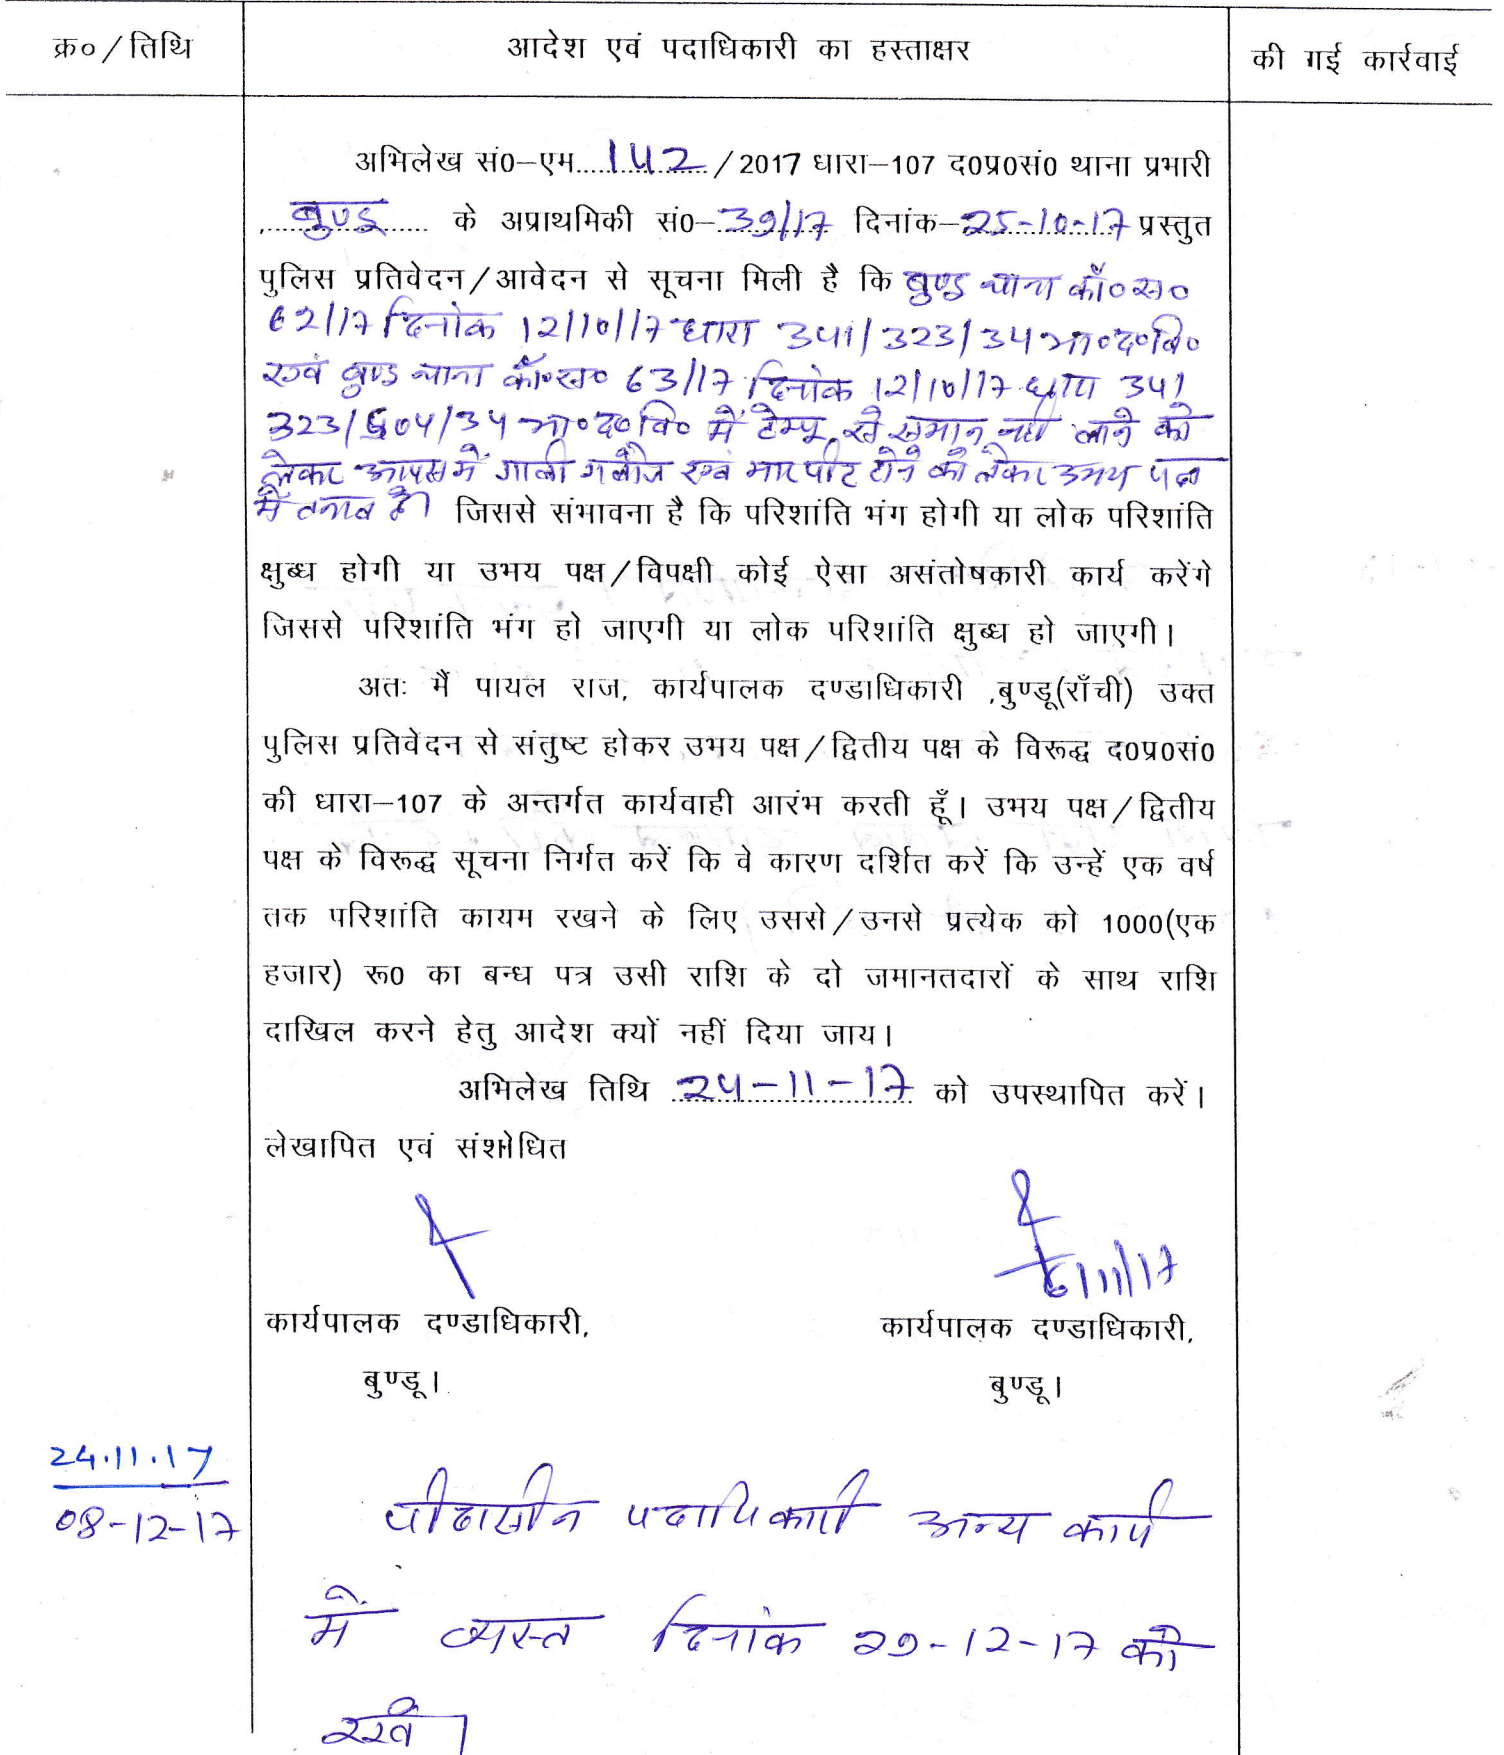 क्र० / तिथि
आदेश एवं पदाधिकारी का हस्ताक्षर
की गई कार्रवाई
अभिलेख सं०–एम....142..../2017 धारा–107 द०प्र०सं० थाना प्रभारी
बुण्डू के अप्राथमिकी सं०–39/17 दिनांक–25-10-17 प्रस्तुत
पुलिस प्रतिवेदन/आवेदन से सूचना मिली है कि बुण्डु थाना काँ०सं०
62/17 दिनांक 12/10/17 धारा 341/323/34 भा०द०वि०
एवं बुण्डु थाना काँ०सं० 63/17 दिनांक 12/10/17 धारा 341
323/504/34 भा०द०वि० में टेम्पू से समान नहीं लाने को
लेकर आपस में गाली गलौज एवं मारपीट होने को लेकर उभय पक्ष
में तनाव है। जिससे संभावना है कि परिशांति भंग होगी या लोक परिशांति
क्षुब्ध होगी या उभय पक्ष/विपक्षी कोई ऐसा असंतोषकारी कार्य करेंगे
जिससे परिशांति भंग हो जाएगी या लोक परिशांति क्षुब्ध हो जाएगी।
अतः मैं पायल राज, कार्यपालक दण्डाधिकारी ,बुण्डू(राँची) उक्त
पुलिस प्रतिवेदन से संतुष्ट होकर उभय पक्ष/द्वितीय पक्ष के विरूद्ध द०प्र०सं०
की धारा–107 के अन्तर्गत कार्यवाही आरंभ करती हूँ। उभय पक्ष/द्वितीय
पक्ष के विरूद्ध सूचना निर्गत करें कि वे कारण दर्शित करें कि उन्हें एक वर्ष
तक परिशांति कायम रखने के लिए उससे/उनसे प्रत्येक को 1000(एक
हजार) रू० का बन्ध पत्र उसी राशि के दो जमानतदारों के साथ राशि
दाखिल करने हेतु आदेश क्यों नहीं दिया जाय।
अभिलेख तिथि 24-11-17 को उपस्थापित करें।
लेखापित एवं संशोधित
6/11/17
कार्यपालक दण्डाधिकारी,
कार्यपालक दण्डाधिकारी,
बुण्डू।
बुण्डू।
24.11.17
08-12-17
पीठासीन पदाधिकारी अन्य कार्य
में व्यस्त दिनांक 29-12-17 को
रखें।